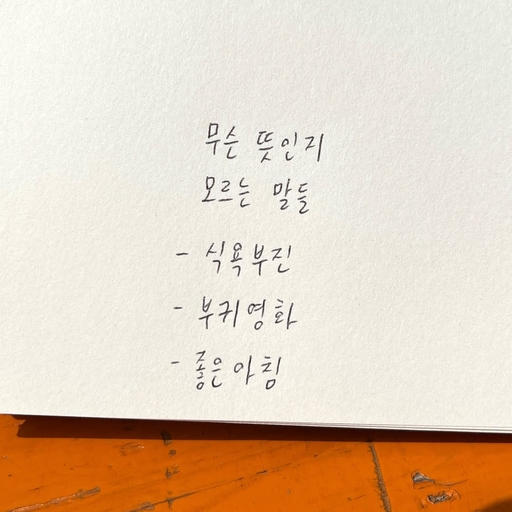 무슨 뜻인지
모르는 말들
- 식욕부진
- 부귀영화
- 좋은아침